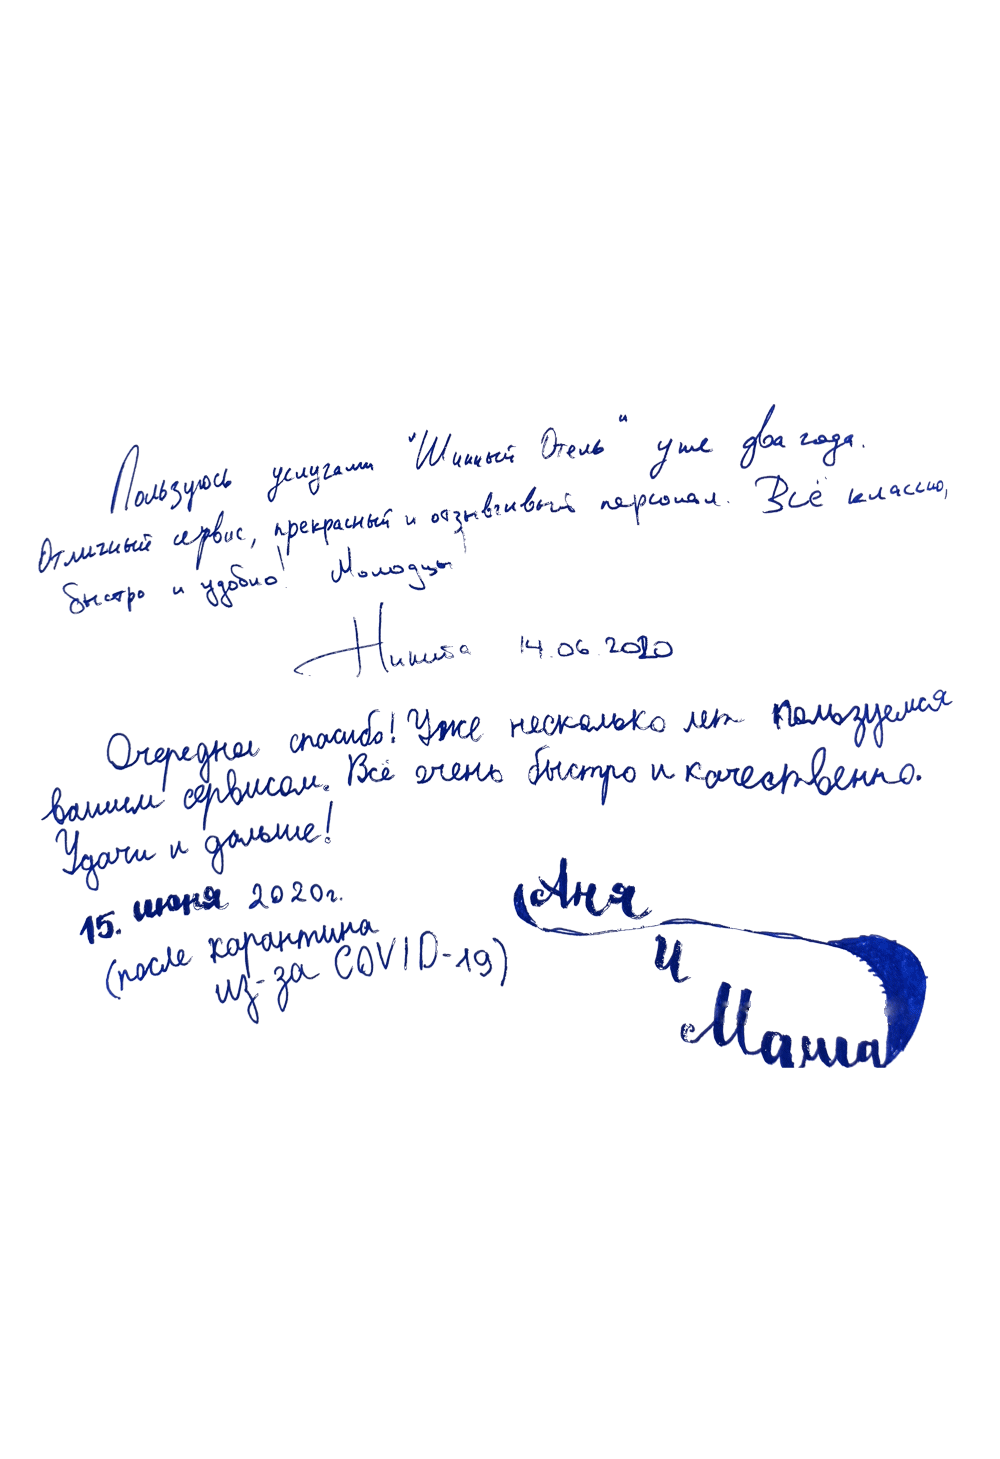 Пользуюсь услугами "Шинный Отель" уже два года.
Отличный сервис, прекрасный и отзывчивый персонал. Всё классно,
быстро и удобно! Молодцы!
Никита 14.06.2020
Очередное спасибо! Уже несколько лет пользуемся
вашим сервисом. Всё очень быстро и качественно.
Удачи и дальше!
15. июня 2020г.
(после карантина
из-за COVID-19)
Аня
и
Маша